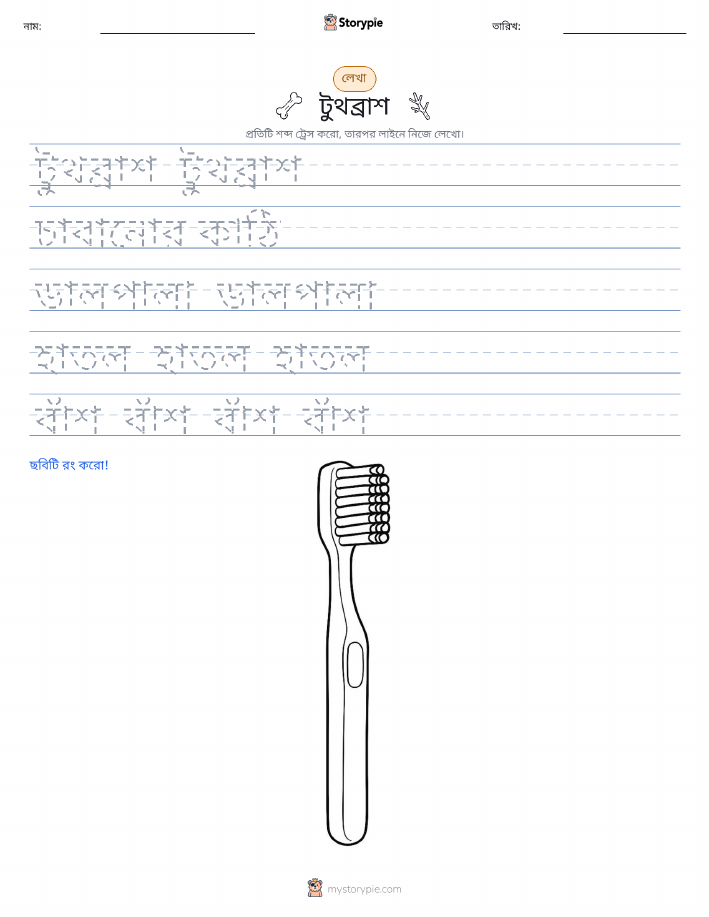 নাম:
Storypie
তারিখ:
লেখা
টুথব্রাশ
প্রতিটি শব্দ ট্রেস করো, তারপর লাইনে নিজে লেখো।
টুথব্রাশ টুথব্রাশ
চাবানোর কাঠি
ডালপালা ডালপালা
হাতল হাতল হাতল
বাঁশ বাঁশ বাঁশ বাঁশ
ছবিটি রং করো!
mystorypie.com